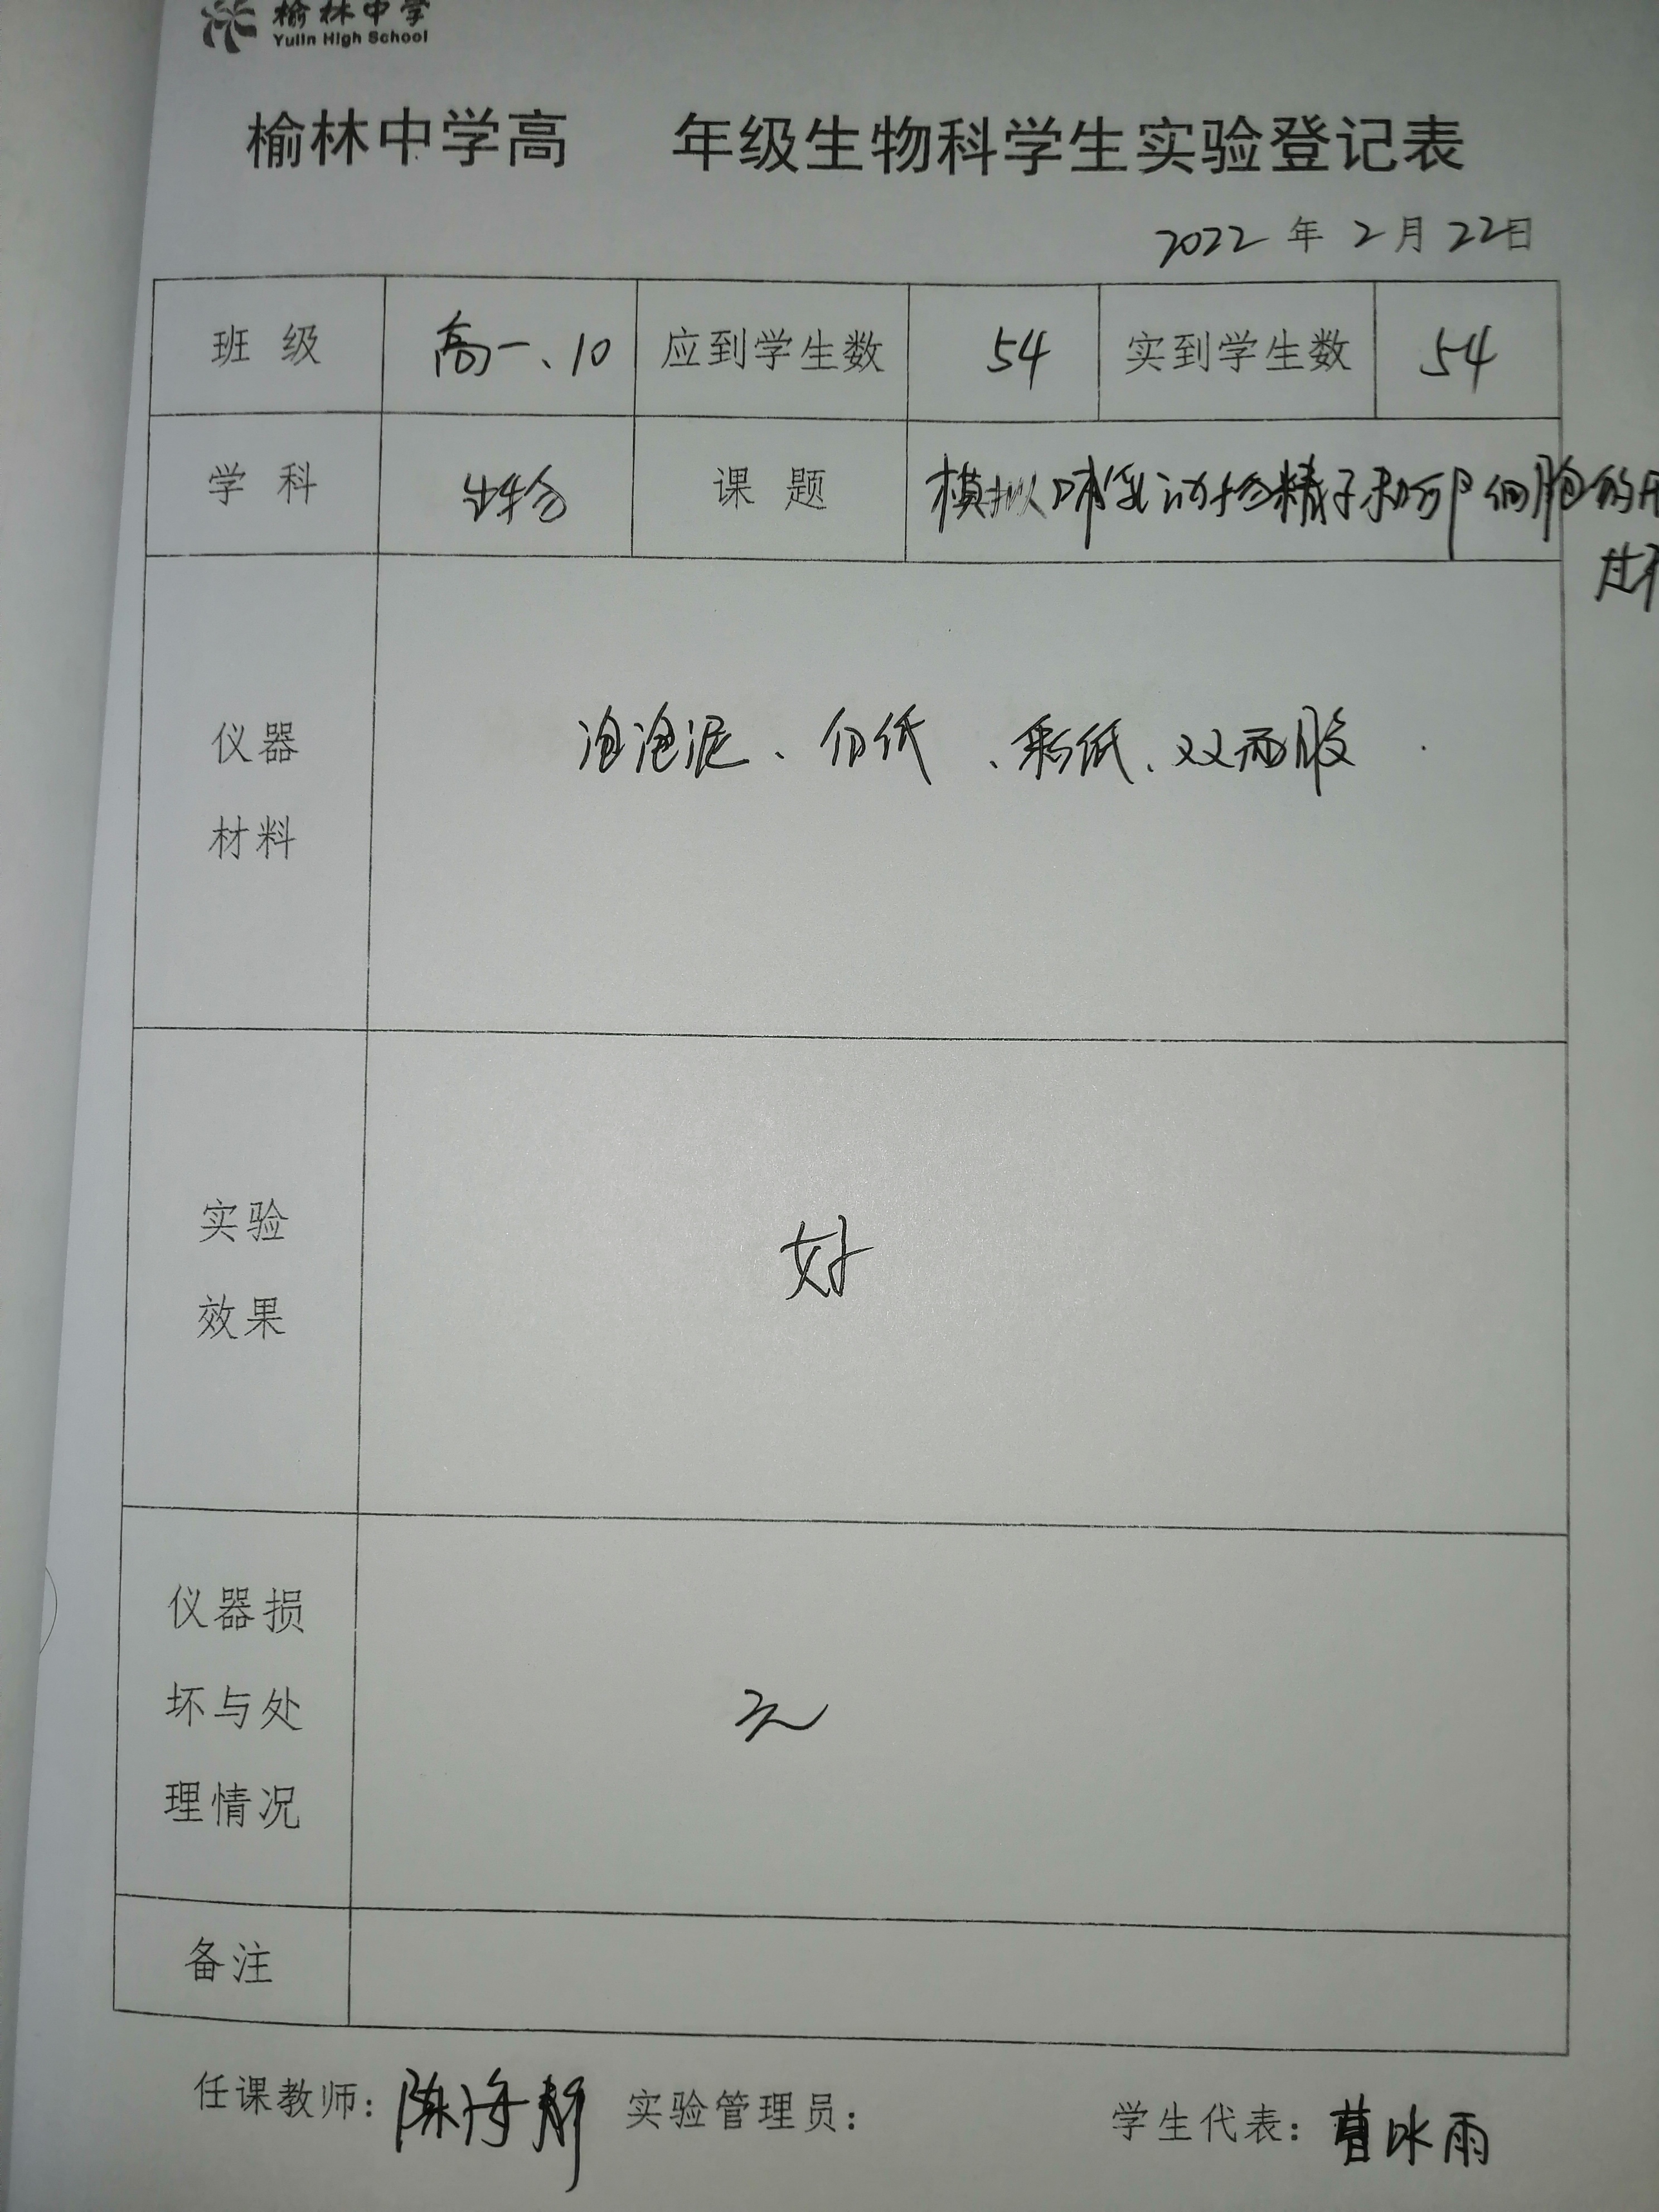 榆林中学
Yulin High School
榆林中学高 年级生物科学生实验登记表
2022 年 2 月 22 日
班 级 高一、10 应到学生数 54 实到学生数 54
学 科 生物 课 题 模拟哺乳动物精子和卵细胞的
仪器
材料
泡泡泥、白纸、彩纸、双面胶
实验
效果
好
仪器损
坏与处
理情况
无
备注
任课教师: 陈海静 实验管理员: 学生代表: 曹冰雨